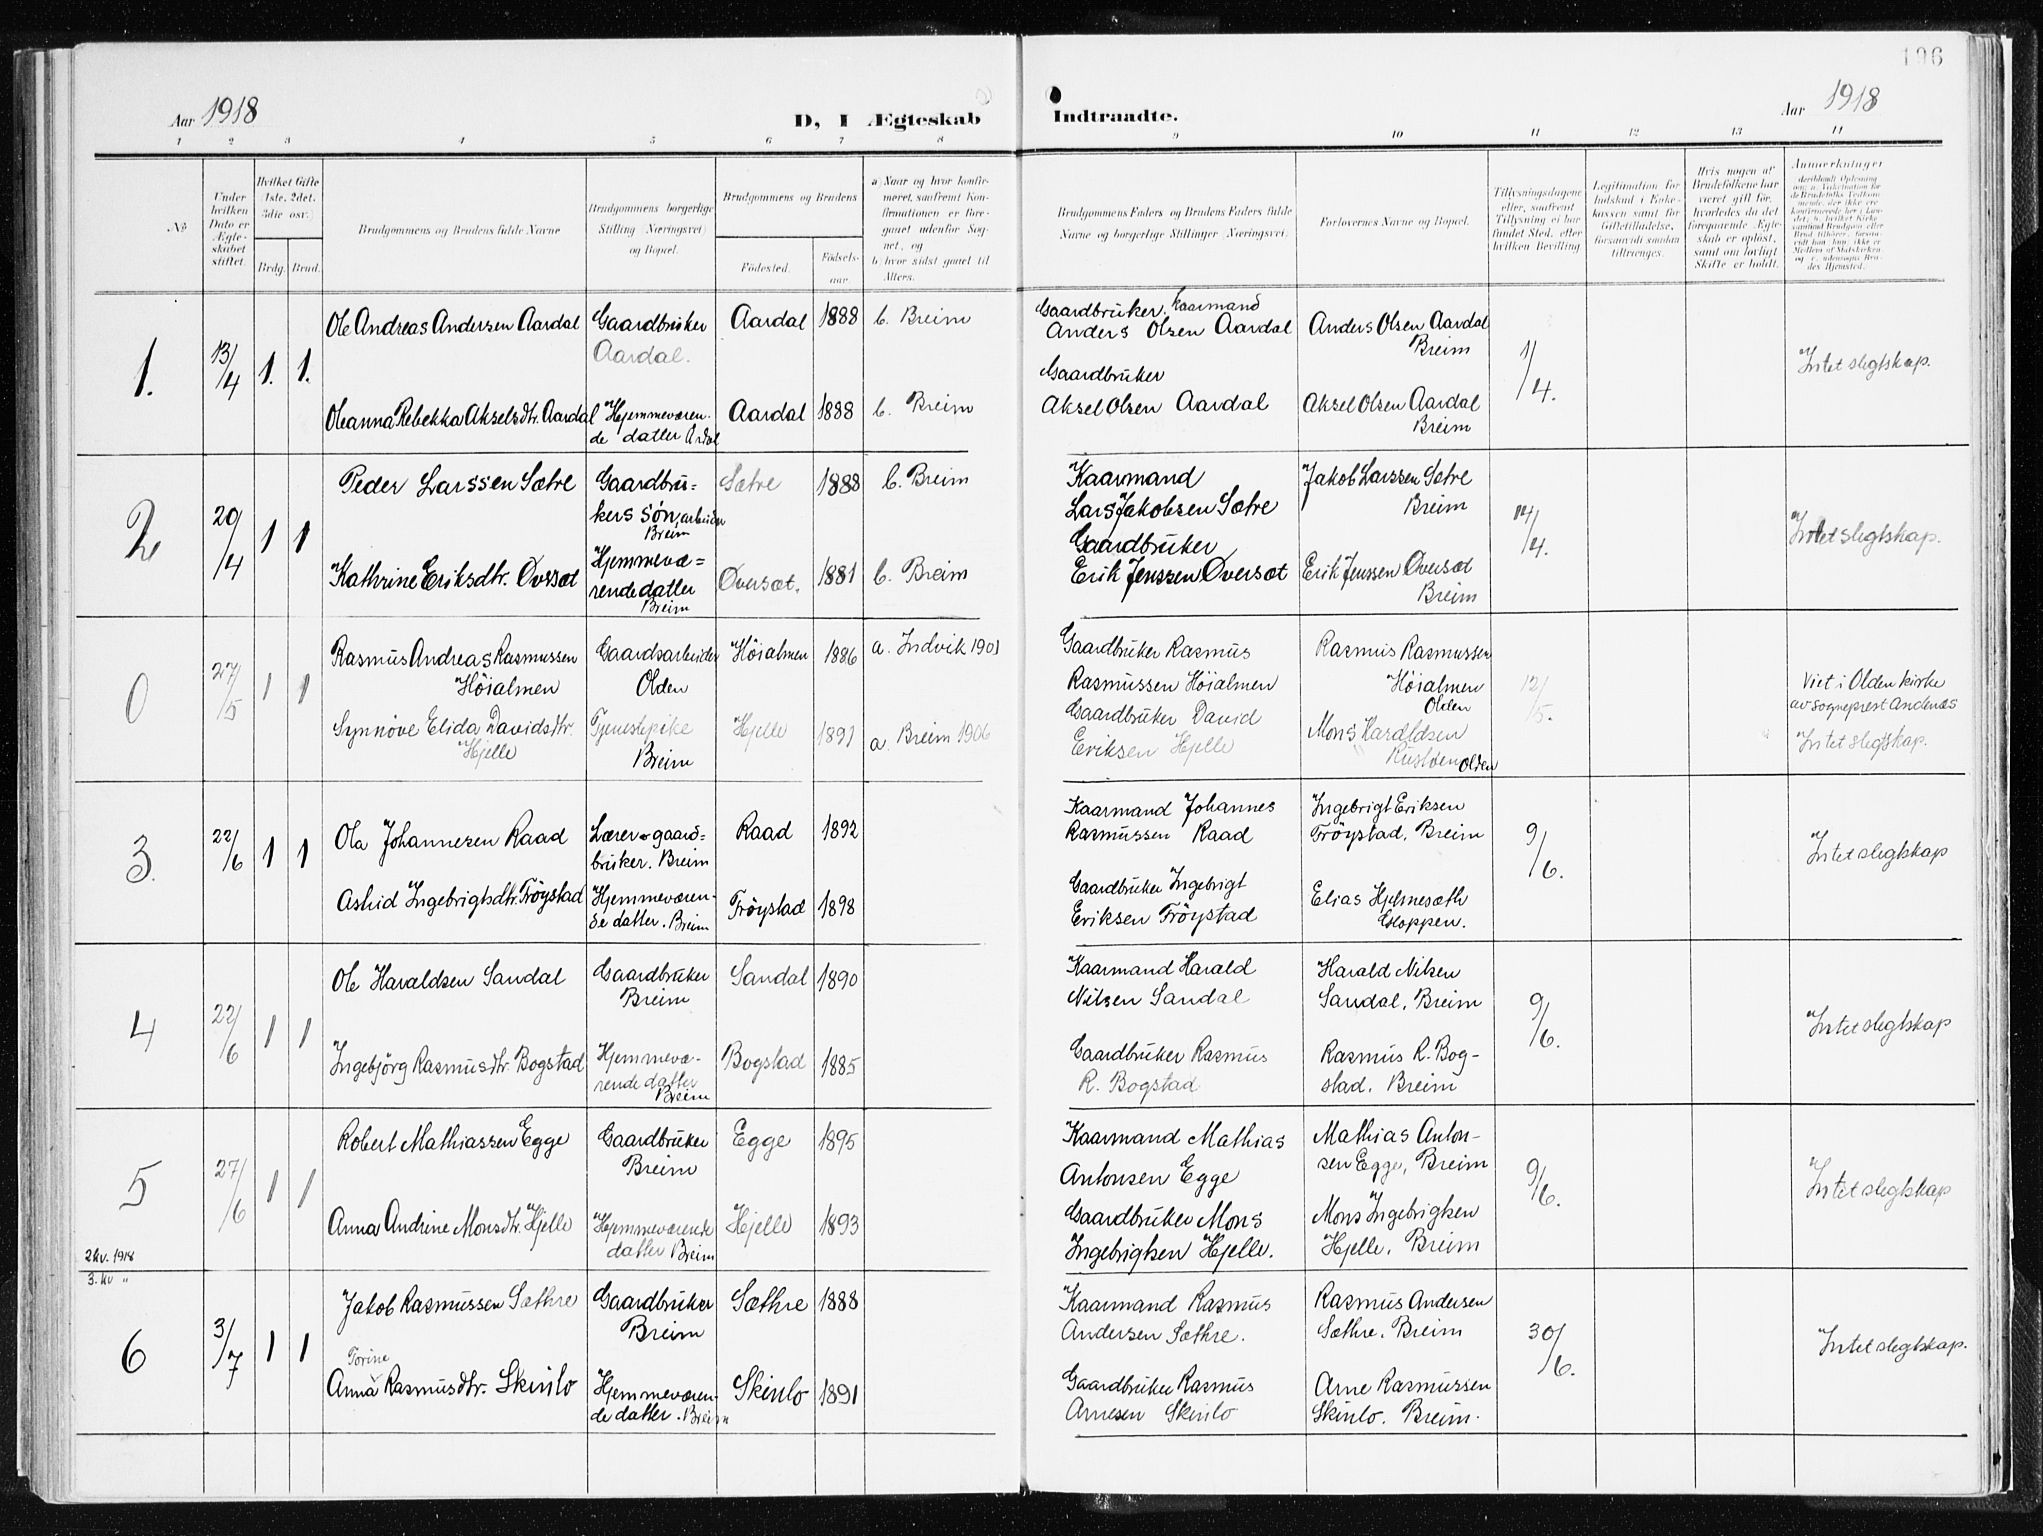 196
Aar 1918
D, I Ægteskab
Indtraadte.
Aar 1918
1 2 3 4 5 6 7 8 9 10 11 12 13 14
No
Under hvilken Dato er Ægteskabet stiftet.
Hvilket Gifte (1ste, 2det, 3die osv.)
Brdg.
Brud.
Brudgommens og Brudens fulde Navne
Brudgommens borgerlige Stilling (Næringsvei) og Bopæl.
Brudgommens og Brudens
Fødested.
Fødselsaar.
a) Naar og hvor konfirmeret, saafremt Konfirmationen er foregaaet udenfor Sognet, og
b. hvor sidst gaaet til Alters.
Brudgommens Faders og Brudens Faders fulde Navne og borgerlige Stillinger (Næringsvei).
Forlovernes Navne og Bopæl.
Tillysningsdagene eller, saafremt Tillysning ei har fundet Sted, efter hvilken Bevilling
Legitimation for Indskud i Enkekassen samt for Giftetilladelse, forsaavidt saadan tiltrænges.
Hvis nogen af Brudefolkene har været gift før, hvorledes da det foregaaende Ægteskab er opløst, samt om lovligt Skifte er holdt.
Anmerkninger
1.
13/4
1. 1.
Ole Andreas Andersen Aardal
Gaardbruker
Aardal.
Aardal
1888
b. Breim
Gaardbruker. Kaarmand
Anders Olsen Aardal
Anders Olsen Aardal
Breim
1/4.
Intet slegtskap.
Oleanna Rebekka Akselsdtr. Aardal
Hjemmeværen-
de datter Årdal
Aardal
1888
b. Breim
Gaardbruker
Aksel Olsen Aardal
Aksel Olsen Aardal
Breim
2
20/4
1 1
Peder Larssen Sætre
Gaardbru-
kers søn, arbeider
Breim
Sætre
1888
b. Breim
Kaarmand
Lars Jakobsen Sætre
Jakob Larssen Sætre
Breim
14/4.
Intet slegtskap.
Kathrine Eriksdtr. Øvsæt
Hjemmevæ=
rende datter
Breim
Øversæt.
1881
b. Breim
Gaardbruker
Erik Jenssen Øversæt
Erik Jenssen Øversæt
Breim
0
27/5
1 1
Rasmus Andreas Rasmussen
Höialmen
Gaardsarbeider
Olden
Höialmen
1886
a. Indvik 1901
Gaardbruker Rasmus
Rasmussen Höialmen
Rasmus Rasmussen
Höialmen
Olden
12/5.
Viet i Olden kirke
av sogneprest Andenæs
Intet slegtskap.
Synnöve Elida Davidsdtr.
Hjelle
Tjenestepike
Breim
Hjelle
1891
a. Breim 1906
Gaardbruker David
Eriksen Hjelle
Mons Haraldsen
Olden
3.
22/6
1 1
Ola Johannesen Raad
Lærer og gaard=
bruker. Breim
Raad
1892
Kaarmand Johannes
Rasmussen Raad
Ingebrigt Eriksen
Fröystad, Breim
9/6.
Intet slegtskap
Astrid Ingebrigtsdtr. Fröystad
Hjemmeværen-
de datter. Breim
Fröystad
1898
Gaardbruker Ingebrigt
Eriksen Fröystad
Elias Hjelmesæth
Gloppen.
4
22/6
1 1
Ole Haraldsen Sandal
Gaardbruker
Breim
Sandal
1890
Kaarmand Harald
Nilsen Sandal
Harald Nilsen
Sandal, Breim
9/6.
Intet slegtskap
Ingebjörg Rasmusdtr. Bogstad
Hjemmevæ-
rende datter
Breim
Bogstad
1885
Gaardbruker Rasmus
R. Bogstad
Rasmus R. Bog-
stad, Breim
5
27/6
1 1
Robert Mathiassen Egge
Gaardbruker
Breim
Egge
1895
Kaarmand Mathias
Antonsen Egge
Mathias Anton-
sen Egge, Breim
9/6.
Intet slegtskap
Anna Andrine Monsdtr. Hjelle
Hjemmeværende
datter Breim
Hjelle
1893
Gaardbruker Mons
Ingebrigtsen Hjelle.
Mons Ingebrigtsen
Hjelle, Breim
2 kv. 1918
3. kv "
6
3/7
1 1
Jakob Rasmussen Sæthre
Gaardbruker
Breim
Sæthre
1888
Kaarmand Rasmus
Andersen Sæthre.
Rasmus Andersen
Sæthre, Breim
30/6.
Intet slegtskap.
Torine
Anna Rasmusdtr. Skinlo
Hjemmeværen-
de datter. Breim
Skinlo
1891
Gaardbruker Rasmus
Arnesen Skinlo
Arne Rasmussen
Skinlo. Breim.